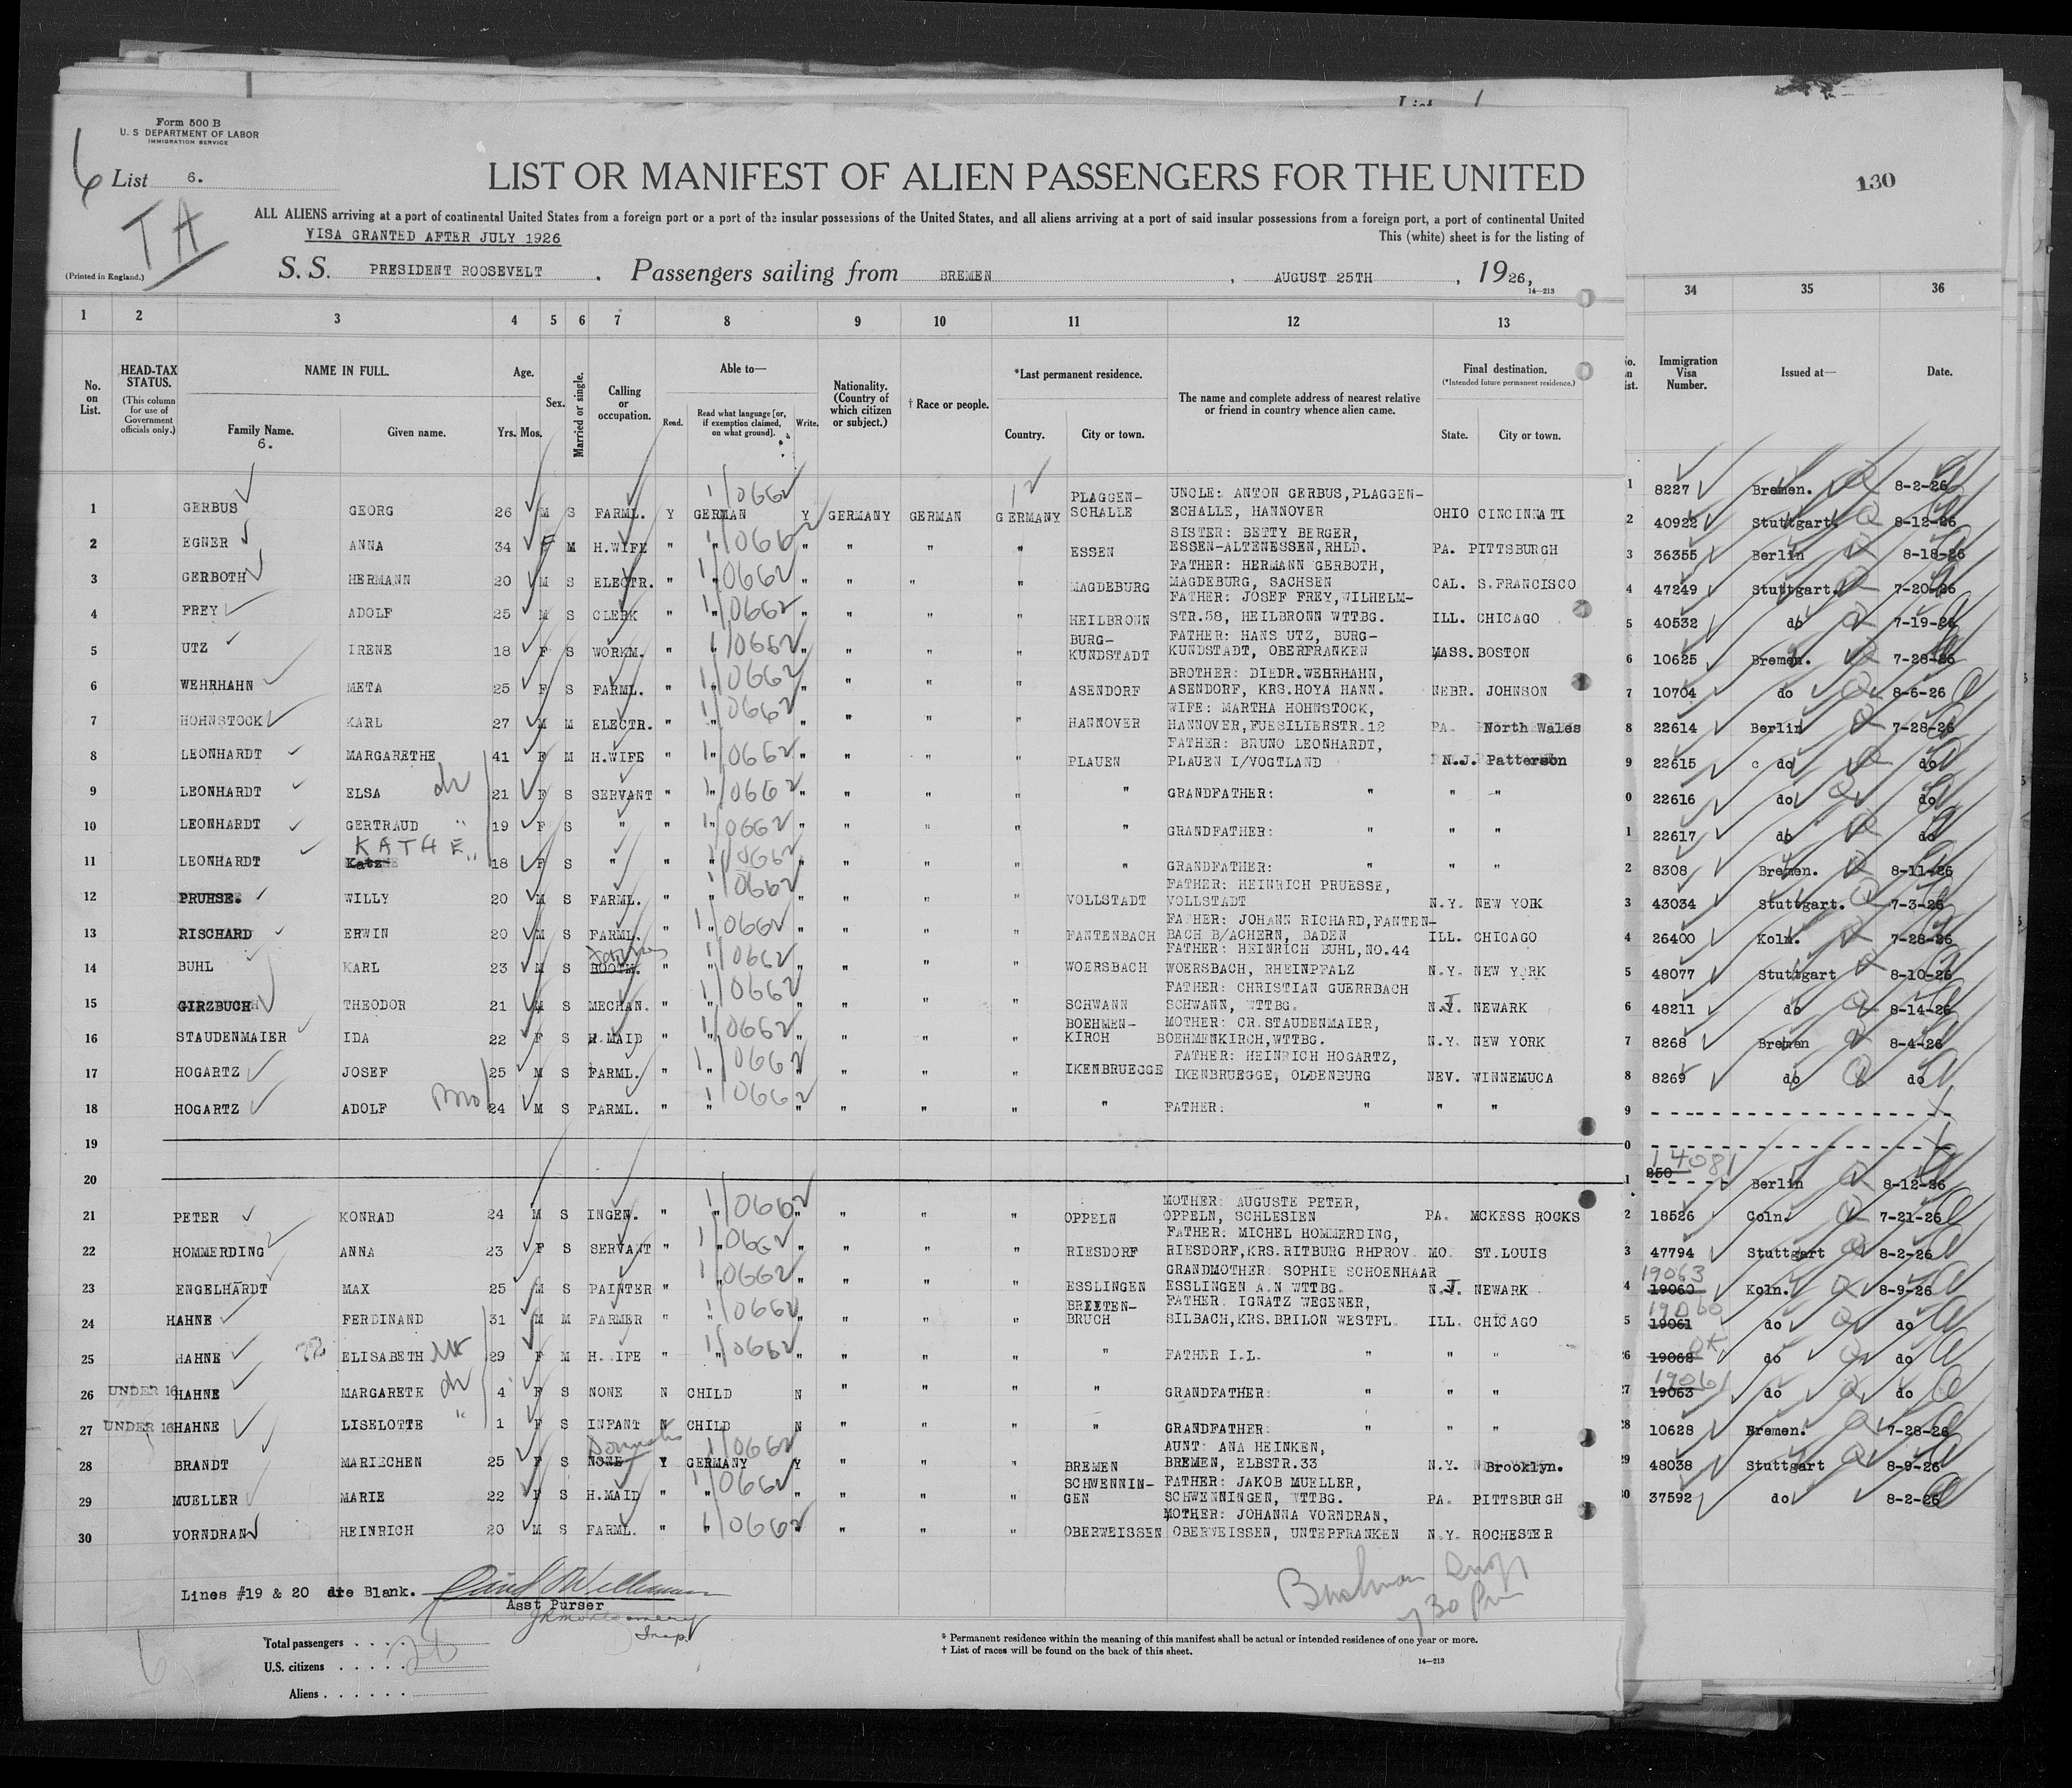 Form 500 B
U. S DEPARTMENT OF LABOR
IMMIGRATION SERVICE
6 List 6.
TA
LIST OR MANIFEST OF ALIEN PASSENGERS FOR THE UNITED
130
ALL ALIENS arriving at a port of continental United States from a foreign port or a port of the insular possessions of the United States, and all aliens arriving at a port of said insular possessions from a foreign port, a port of continental United
VISA GRANTED AFTER JULY 1926
This (white) sheet is for the listing of
(Printed in England.)
S. S. PRESIDENT ROOSEVELT . Passengers sailing from BREMEN , AUGUST 25TH , 1926,
14—213
1 2 3 4 5 6 7 8 9 10 11 12 13 34 35 36
No. on List.
HEAD-TAX STATUS. (This column for use of Government officials only.)
NAME IN FULL.
Family Name. 6.
Given name.
Age.
Yrs. Mos.
Sex.
Married or single.
Calling or occupation.
Able to—
Read.
Read what language [or, if exemption claimed, on what ground].
Write.
Nationality. (Country of which citizen or subject.)
† Race or people.
*Last permanent residence.
Country.
City or town.
The name and complete address of nearest relative or friend in country whence alien came.
Final destination.
(*Intended future permanent residence.)
State.
City or town.
Immigration Visa Number.
Issued at—
Date.
1 GERBUS GEORG 26 M S FARML. Y GERMAN Y GERMANY GERMAN GERMANY PLAGGEN-SCHALLE UNCLE: ANTON GERBUS, PLAGGEN-SCHALLE, HANNOVER OHIO CINCINNATI 1 8227 Bremen. 8-2-26
2 EGNER ANNA 34 F M H.WIFE " " " " " " ESSEN SISTER: BETTY BERGER, ESSEN-ALTENESSEN,RHLD. PA. PITTSBURGH 2 40922 Stuttgart. 8-12-26
3 GERBOTH HERMANN 20 M S ELECTR. " " " " " " MAGDEBURG FATHER: HERMANN GERBOTH, MAGDEBURG, SACHSEN CAL. S.FRANCISCO 3 36355 Berlin 8-18-26
4 FREY ADOLF 25 M S CLERK " " " " " " HEILBRONN FATHER: JOSEF FREY,WILHELM-STR.58, HEILBRONN WTTBG. ILL. CHICAGO 4 47249 Stuttgart. 7-20-26
5 UTZ IRENE 18 F S WORKM. " " " " " " BURG-KUNDSTADT FATHER: HANS UTZ, BURG-KUNDSTADT, OBERFRANKEN MASS. BOSTON 5 40532 do 7-19-26
6 WEHRHAHN META 25 F S FARML. " " " " " " ASENDORF BROTHER: DIEDR.WEHRHAHN, ASENDORF, KRS.HOYA HANN. NEBR. JOHNSON 6 10625 Bremen. 7-28-26
7 HOHNSTOCK KARL 27 M M ELECTR. " " " " " " HANNOVER WIFE: MARTHA HOHNSTOCK, HANNOVER,FUESILIERSTR.12 PA. North Wales 7 10704 do 8-6-26
8 LEONHARDT MARGARETHE 41 F M H.WIFE " " " " " " PLAUEN FATHER: BRUNO LEONHARDT, PLAUEN I/VOGTLAND N.J. Patterson 8 22614 Berlin 7-28-26
9 LEONHARDT ELSA 21 F S SERVANT " " " " " " " GRANDFATHER: " " " 9 22615 do do
10 LEONHARDT GERTRAUD " 19 F S " " " " " " " " GRANDFATHER: " " " 0 22616 do do
KATHE "
11 LEONHARDT 18 F S " " " " " " " " GRANDFATHER: " " " 1 22617 do do
12 PRUHSE. WILLY 20 M S FARML. " " " " " " VOLLSTADT FATHER: HEINRICH PRUESSE, VOLLSTADT N.Y. NEW YORK 2 8308 Bremen. 8-11-26
13 RISCHARD ERWIN 20 M S FARML. " " " " " " FANTENBACH FATHER: JOHANN RICHARD,FANTEN-BACH B/ACHERN, BADEN ILL. CHICAGO 3 43034 Stuttgart. 7-3-26
14 BUHL KARL 23 M S BOOTM. " " " " " " WOERSBACH FATHER: HEINRICH BUHL,NO.44 WOERSBACH, RHEINPFALZ N.Y. NEW YORK 4 26400 Koln. 7-28-26
15 GIRZBUCH THEODOR 21 M S MECHAN. " " " " " " SCHWANN FATHER: CHRISTIAN GUERRBACH SCHWANN, WTTBG. N.J. NEWARK 5 48077 Stuttgart 8-10-26
16 STAUDENMAIER IDA 22 F S H.MAID " " " " " " BOEHMEN-KIRCH MOTHER: CR.STAUDENMAIER, BOEHMENKIRCH,WTTBG. N.Y. NEW YORK 6 48211 do 8-14-26
17 HOGARTZ JOSEF 25 M S FARML. " " " " " " IKENBRUEGGE FATHER: HEINRICH HOGARTZ, IKENBRUEGGE, OLDENBURG NEV. WINNEMUCA 7 8268 Bremen 8-4-26
18 HOGARTZ ADOLF Bro 24 M S FARML. " " " " " " " FATHER: " " " 8 8269 do do
19 9
20 0
21 PETER KONRAD 24 M S INGEN. " " " " " " OPPELN MOTHER: AUGUSTE PETER, OPPELN, SCHLESIEN PA. MCKESS ROCKS 1 250 14081 Berlin 8-12-26
22 HOMMERDING ANNA 23 F S SERVANT " " " " " " RIESDORF FATHER: MICHEL HOMMERDING, RIESDORF,KRS.RITBURG RHPROV. MO. ST.LOUIS 2 18526 Coln. 7-21-26
23 ENGELHARDT MAX 25 M S PAINTER " " " " " " ESSLINGEN GRANDMOTHER: SOPHIE SCHOENHAAR ESSLINGEN A.N WTTBG. N.J. NEWARK 3 47794 Stuttgart 8-2-26
24 HAHNE FERDINAND 31 M M FARMER " " " " " " BREITEN-BRUCH FATHER: IGNATZ WEGENER, SILBACH,KRS.BRILON WESTFL. ILL. CHICAGO 4 19060 19063 Koln. 8-9-26
25 HAHNE ELISABETH 29 F M H. IFE " " " " " " " FATHER I.L. " " " 5 19061 19060 do do
26 UNDER 16 HAHNE MARGARETE 4 F S NONE N CHILD N " " " " GRANDFATHER: " " " 6 19062 OK do do
27 UNDER 16 HAHNE LISELOTTE " 1 F S INFANT N CHILD N " " " " GRANDFATHER: " " " 27 19063 19061 do do
28 BRANDT MARIECHEN 25 F S NONE Domestic Y GERMANY Y " " " BREMEN AUNT: ANA HEINKEN, BREMEN, ELBSTR.33 N.Y. Brooklyn. 28 10628 Bremen. 7-28-26
29 MUELLER MARIE 22 F S H.MAID " " " " " " SCHWENNIN-GEN FATHER: JAKOB MUELLER, SCHWENNINGEN, WTTBG. PA. PITTSBURGH 29 48038 Stuttgart 8-9-26
30 VORNDRAN HEINRICH 20 M S FARML. " " " " " " OBERWEISSEN MOTHER: JOHANNA VORNDRAN, OBERWEISSEN, UNTERFRANKEN N.Y. ROCHESTER 30 37592 do 8-2-26
Lines #19 & 20 are Blank.
Asst Purser
Insp.
730 Pm
Total passengers . . . .
U.S. citizens . . . . .
Aliens . . . . . .
* Permanent residence within the meaning of this manifest shall be actual or intended residence of one year or more.
† List of races will be found on the back of this sheet.
14—213